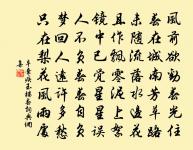 風前欲勸春光住
春在城南芳草路
未隨流落水邊花
且作飄零泥上絮
鏡中已覺星星誤
人不負春春自負
夢回人遠許多愁
只在梨花風雨處
辛棄疾玉樓春